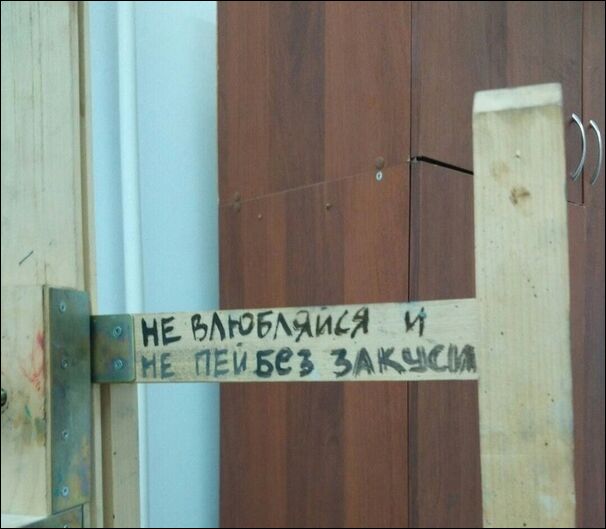 НЕ ВЛЮБЛЯЙСЯ И
НЕ ПЕЙ БЕЗ ЗАКУСИ